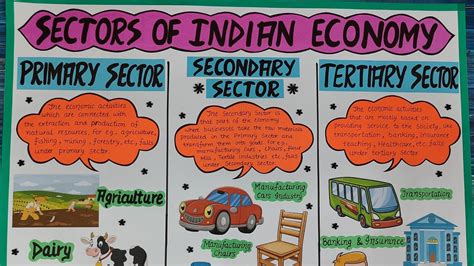 SECTORS OF INDIAN ECONOMY
PRIMARY SECTOR
The economic activities
which are connected with
the extraction and production of
natural resources, for e.g., agriculture,
fishing, mining, forestry, etc., falls
under primary sector.
Agriculture
Dairy
SECONDARY
SECTOR
The Secondary Sector is
that part of the economy
when businesses take the raw materials
produced in the Primary Sector and
transform them into goods. for e.g.,
manufacturing Cars, Chairs, Flour
Mill, Textile industries etc, falls
under Secondary Sector.
Manufacturing
Cars Industry
Manufacturing
Chairs
TERTIARY SECTOR
The economic activities
that are mostly based on
providing service to the Society, like
transportation, banking, insurance
teaching, Healthcare, etc. falls
under tertiary sector.
Transportation
Banking & Insurance